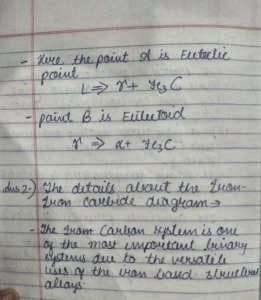 - Here the point A is Eutectic
point
L ⇒ γ + Fe₃C
- point B is Eutectoid
γ ⇒ α + Fe₃C
Ans 2-) The details about the Iron-
Iron carbide diagram →
- The Iron Carbon system is one
of the most important binary
systems due to the versatile
uses of the iron based structural
alloys